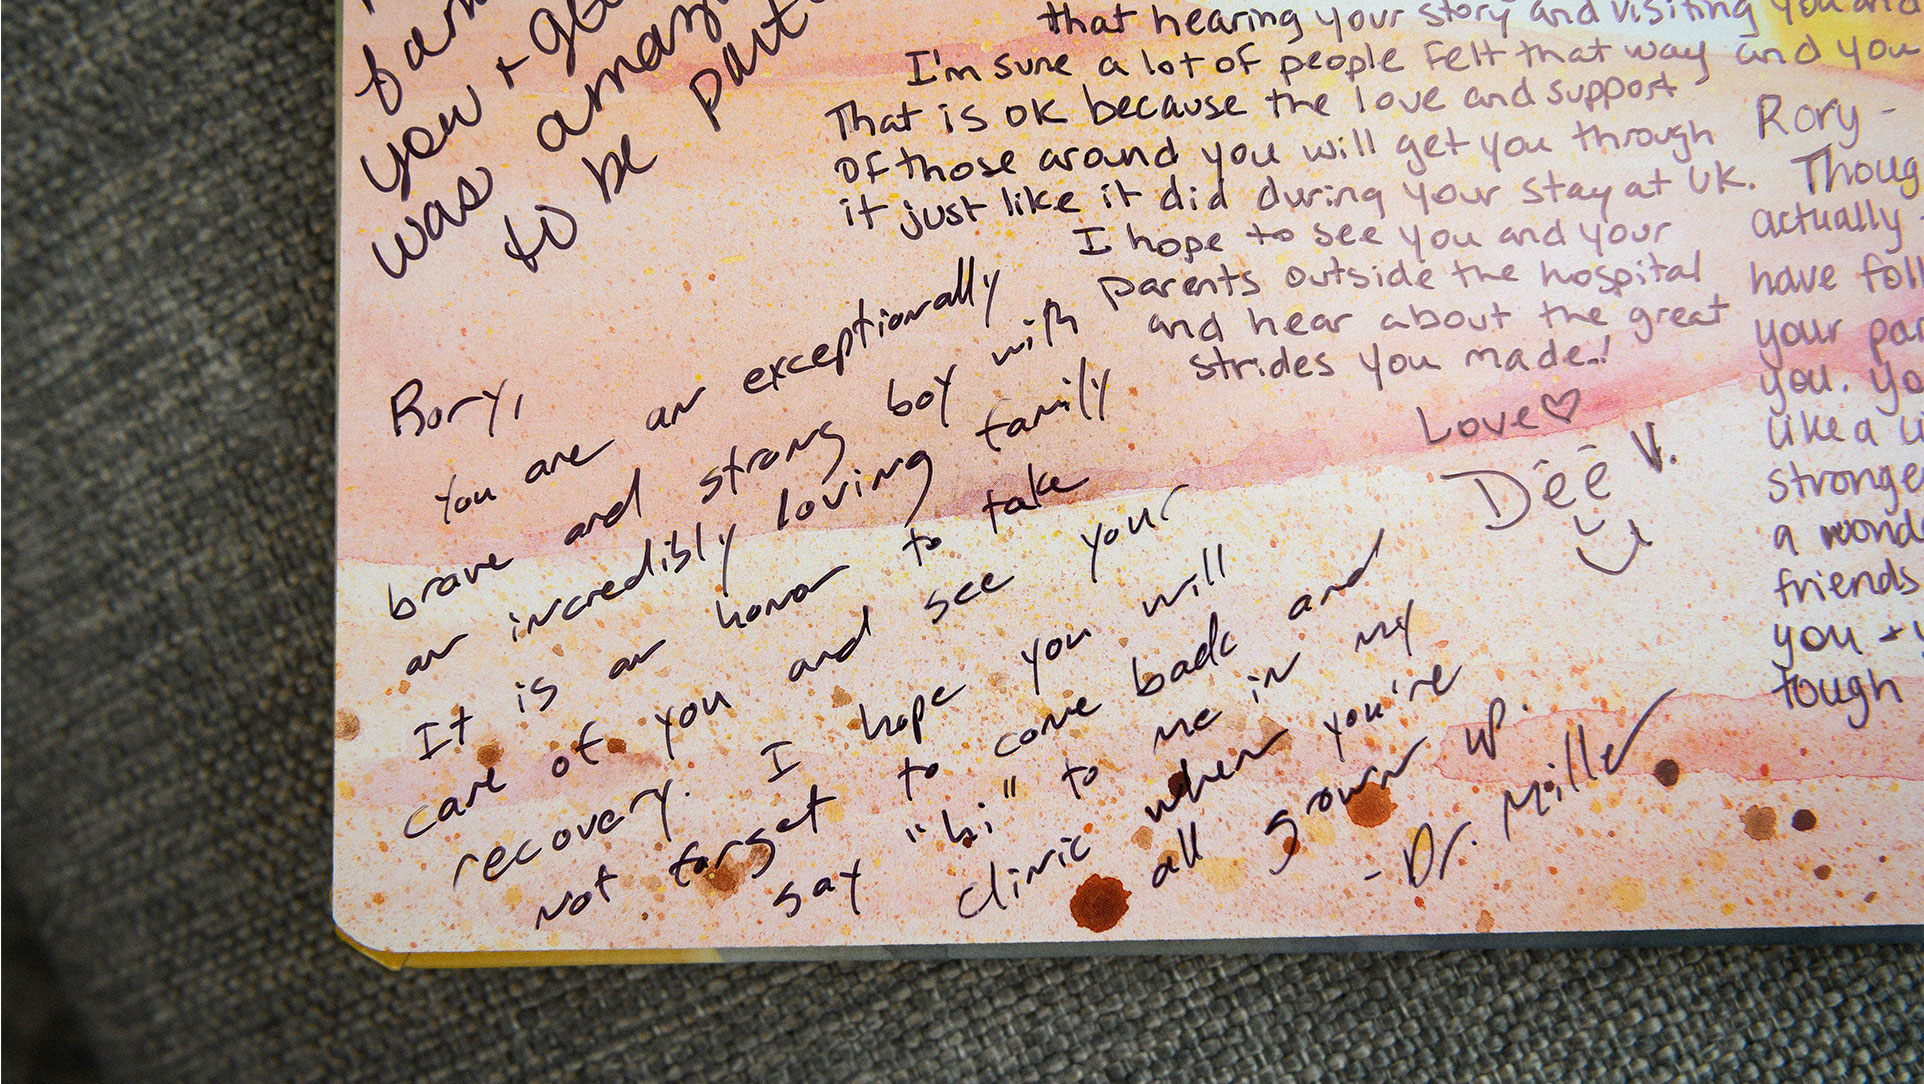 you +
was amazing
to be part
that hearing your story and visiting you and
I'm sure a lot of people felt that way and you
That is ok because the love and support
of those around you will get you through
it just like it did during your stay at UK.
I hope to see you and your
parents outside the hospital
and hear about the great
strides you made..!
Love ♡
Dêê V.
Rory,
You are an exceptionally
brave and strong boy with
an incredibly loving family
It is an honor to take
care of you and see your
recovery. I hope you will
not forget to come back and
say "hi" to me in my
clinic when you're
all grown up.
- Dr. Miller
Rory -
Thoug
actually
have foll
your par
you. yo
like a
stronge
a wond
friends
you +
tough